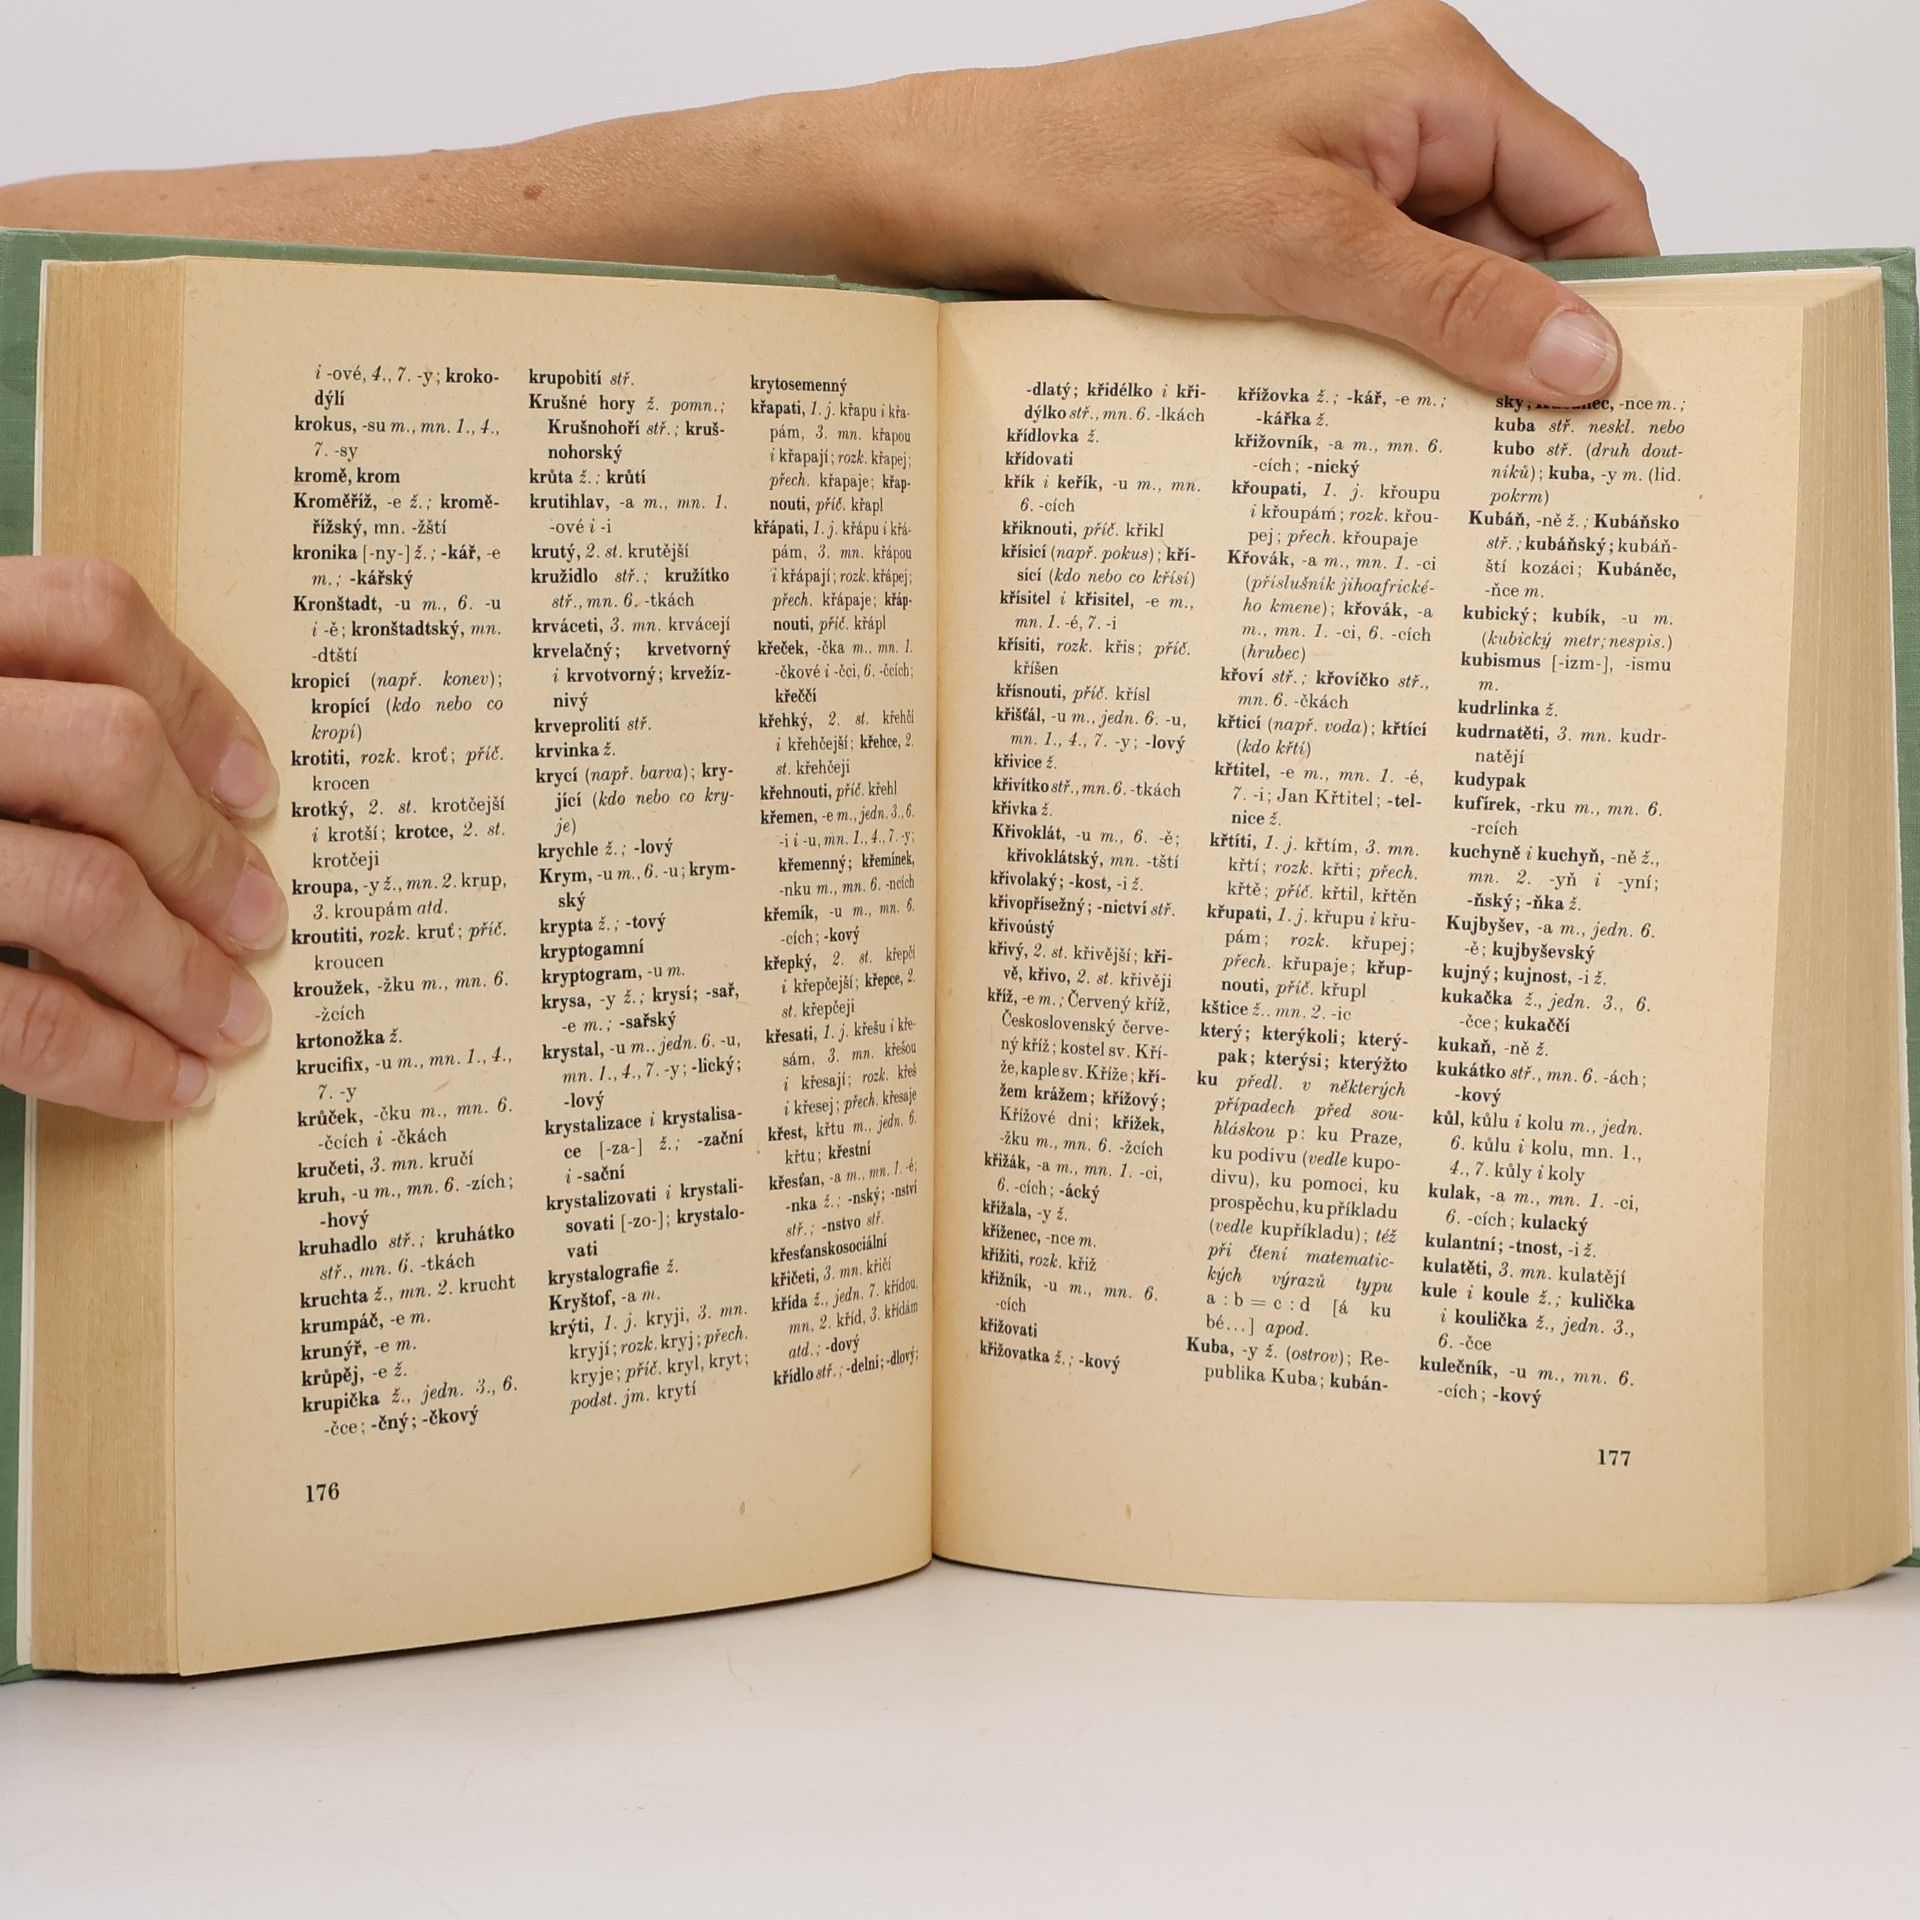 i -ové, 4., 7. -y; kroko-
dýlí
krokus, -su m., mn. 1., 4.,
7. -sy
kromě, krom
Kroměříž, -e ž.; kromě-
řížský, mn. -žští
kronika [-ny-] ž.; -kář, -e
m.; -kářský
Kronštadt, -u m., 6. -u
i -ě; kronštadtský, mn.
-dtští
kropicí (např. konev);
kropící (kdo nebo co
kropí)
krotiti, rozk. kroť; příč.
krocen
krotký, 2. st. krotčejší
i krotší; krotce, 2. st.
krotčeji
kroupa, -y ž., mn. 2. krup,
3. kroupám atd.
kroutiti, rozk. kruť; příč.
kroucen
kroužek, -žku m., mn. 6.
-žcích
krtonožka ž.
krucifix, -u m., mn. 1., 4.,
7. -y
krůček, -čku m., mn. 6.
-čcích i -čkách
kručeti, 3. mn. kručí
kruh, -u m., mn. 6. -zích;
-hový
kruhadlo stř.; kruhátko
stř., mn. 6. -tkách
kruchta ž., mn. 2. krucht
krumpáč, -e m.
krunýř, -e m.
krůpěj, -e ž.
krupička ž., jedn. 3., 6.
-čce; -čný; -čkový
krupobití stř.
Krušné hory ž. pomn.;
Krušnohoří stř.; kruš-
nohorský
krůta ž.; krůtí
krutihlav, -a m., mn. 1.
-ové i -i
krutý, 2. st. krutější
kružidlo stř.; kružítko
stř., mn. 6. -tkách
krváceti, 3. mn. krvácejí
krvelačný; krvetvorný
i krvotvorný; krvežíz-
nivý
krveprolití stř.
krvinka ž.
krycí (např. barva); kry-
jící (kdo nebo co kry-
je)
krychle ž.; -lový
Krym, -u m., 6. -u; krym-
ský
krypta ž.; -tový
kryptogamní
kryptogram, -u m.
krysa, -y ž.; krysí; -sař,
-e m.; -sařský
krystal, -u m., jedn. 6. -u,
mn. 1., 4., 7. -y; -lický;
-lový
krystalizace i krystalisa-
ce [-za-] ž.; -zační
i -sační
krystalizovati i krystali-
sovati [-zo-]; krystalo-
vati
krystalografie ž.
Kryštof, -a m.
krýti, 1. j. kryji, 3. mn.
kryjí; rozk. kryj; přech.
kryje; příč. kryl, kryt;
podst. jm. krytí
krytosemenný
křapati, 1. j. křapu i křa-
pám, 3. mn. křapou
i křapají; rozk. křapej;
přech. křapaje; křap-
nouti, příč. křapl
křápati, 1. j. křápu i křá-
pám, 3. mn. křápou
i křápají; rozk. křápej;
přech. křápaje; křáp-
nouti, příč. křápl
křeček, -čka m., mn. 1.
-čkové i -čci, 6. -čcích;
křeččí
křehký, 2. st. křehčí
i křehčejší; křehce, 2.
st. křehčeji
křehnouti, příč. křehl
křemen, -e m., jedn. 3., 6.
-i i -u, mn. 1., 4., 7. -y;
křemenný; křemínek,
-nku m., mn. 6. -ncích
křemík, -u m., mn. 6.
-cích; -kový
křepký, 2. st. křepčí
i křepčejší; křepce, 2.
st. křepčeji
křesati, 1. j. křešu i kře-
sám, 3. mn. křešou
i křesají; rozk. křeš
i křesej; přech. křesaje
křest, křtu m., jedn. 6.
křtu; křestní
křesťan, -a m., mn. 1. -é;
-nka ž.; -nský; -nství
stř.; -nstvo stř.
křesťanskosociální
křičeti, 3. mn. křičí
křída ž., jedn. 7. křídou,
mn. 2. kříd, 3. křídám
atd.; -dový
křídlo stř.; -delní; -dlový;
176
-dlatý; křidélko i kři-
dýlko stř., mn. 6. -lkách
křídlovka ž.
křídovati
křik i keřík, -u m., mn.
6. -cích
křiknouti, příč. křikl
křísicí (např. pokus); kří-
sící (kdo nebo co křísí)
křísitel i křisitel, -e m.,
mn. 1. -é, 7. -i
křísiti, rozk. křis; příč.
kříšen
křísnouti, příč. křísl
křišťál, -u m., jedn. 6. -u,
mn. 1., 4., 7. -y; -lový
křivice ž.
křivítko stř., mn. 6. -tkách
křivka ž.
Křivoklát, -u m., 6. -ě;
křivoklátský, mn. -tští
křivolaký; -kost, -i ž.
křivopřísežný; -nictví stř.
křivoústý
křivý, 2. st. křivější; kři-
vě, křivo, 2. st. křivěji
kříž, -e m.; Červený kříž,
Československý červe-
ný kříž; kostel sv. Kří-
že, kaple sv. Kříže; kří-
žem krážem; křížový;
Křížové dni; křížek,
-žku m., mn. 6. -žcích
křižák, -a m., mn. 1. -ci,
6. -cích; -ácký
křížala, -y ž.
kříženec, -nce m.
křížiti, rozk. křiž
křižník, -u m., mn. 6.
-cích
křižovati
křižovatka ž.; -kový
křížovka ž.; -kář, -e m.;
-kářka ž.
křižovník, -a m., mn. 6.
-cích; -nický
křoupati, 1. j. křoupu
i křoupám; rozk. křou-
pej; přech. křoupaje
Křovák, -a m., mn. 1. -ci
(příslušník jihoafrické-
ho kmene); křovák, -a
m., mn. 1. -ci, 6. -cích
(hrubec)
křoví stř.; křovíčko stř.,
mn. 6. -čkách
křticí (např. voda); křtící
(kdo křtí)
křtitel, -e m., mn. 1. -é,
7. -i; Jan Křtitel; -tel-
nice ž.
křtíti, 1. j. křtím, 3. mn.
křtí; rozk. křti; přech.
křtě; příč. křtil, křtěn
křupati, 1. j. křupu i křu-
pám; rozk. křupej;
přech. křupaje; křup-
nouti, příč. křupl
kštice ž., mn. 2. -ic
který; kterýkoli; který-
pak; kterýsi; kterýžto
ku předl. v některých
případech před sou-
hláskou p: ku Praze,
ku podivu (vedle kupo-
divu), ku pomoci, ku
prospěchu, ku příkladu
(vedle kupříkladu); též
při čtení matematic-
kých výrazů typu
a : b = c : d [á ku
bé...] apod.
Kuba, -y ž. (ostrov); Re-
publika Kuba; kubán-
ský; -nce m.;
kuba stř. neskl. nebo
kubo stř. (druh dout-
níků); kuba, -y m. (lid.
pokrm)
Kubáň, -ně ž.; Kubáňsko
stř.; kubáňský; kubáň-
ští kozáci; Kubáněc,
-ňce m.
kubický; kubík, -u m.
(kubický metr; nespis.)
kubismus [-izm-], -ismu
m.
kudrlinka ž.
kudrnatěti, 3. mn. kudr-
natějí
kudypak
kufírek, -rku m., mn. 6.
-rcích
kuchyně i kuchyň, -ně ž.,
mn. 2. -yň i -yní;
-ňský; -ňka ž.
Kujbyšev, -a m., jedn. 6.
-ě; kujbyševský
kujný; kujnost, -i ž.
kukačka ž., jedn. 3., 6.
-čce; kukaččí
kukaň, -ně ž.
kukátko stř., mn. 6. -ách;
-kový
kůl, kůlu i kolu m., jedn.
6. kůlu i kolu, mn. 1.,
4., 7. kůly i koly
kulak, -a m., mn. 1. -ci,
6. -cích; kulacký
kulantní; -tnost, -i ž.
kulatěti, 3. mn. kulatějí
kule i koule ž.; kulička
i koulička ž., jedn. 3.,
6. -čce
kulečník, -u m., mn. 6.
-cích; -kový
177